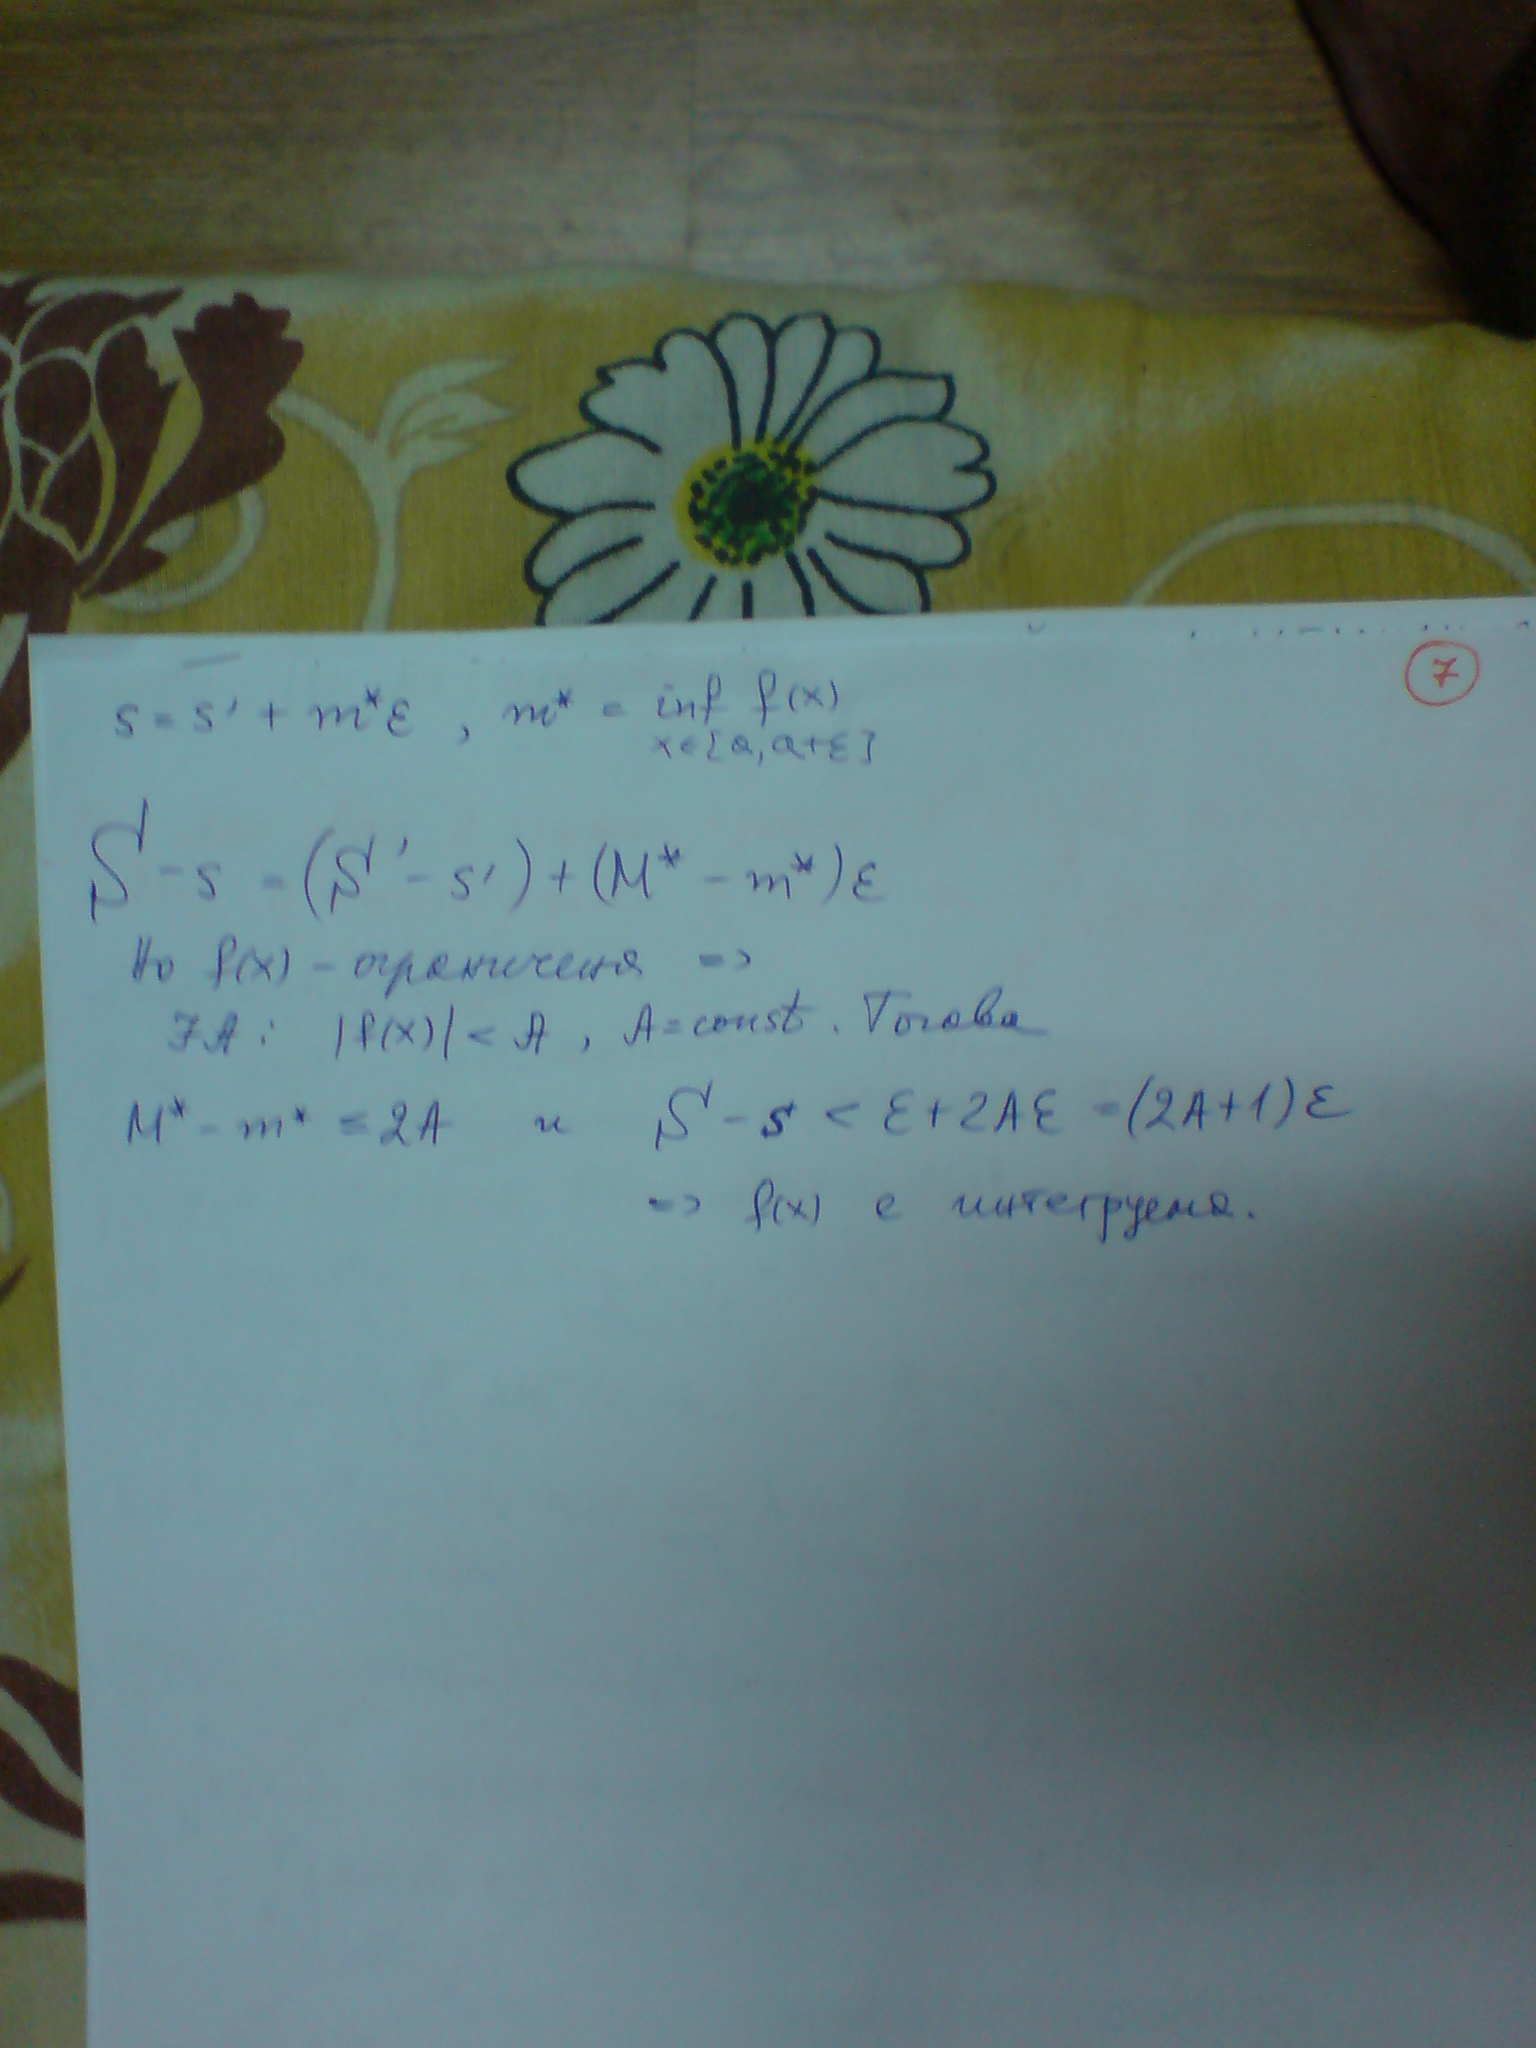 7
s = s' + m*ε , m* = inf f(x)
x∈[a, a+ε]
S - s = (S' - s') + (M* - m*)ε
Но f(x) - ограничена =>
∃A : |f(x)| < A , A = const. Тогава
M* - m* ≤ 2A и S - s < ε + 2Aε = (2A+1)ε
=> f(x) е интегруема.